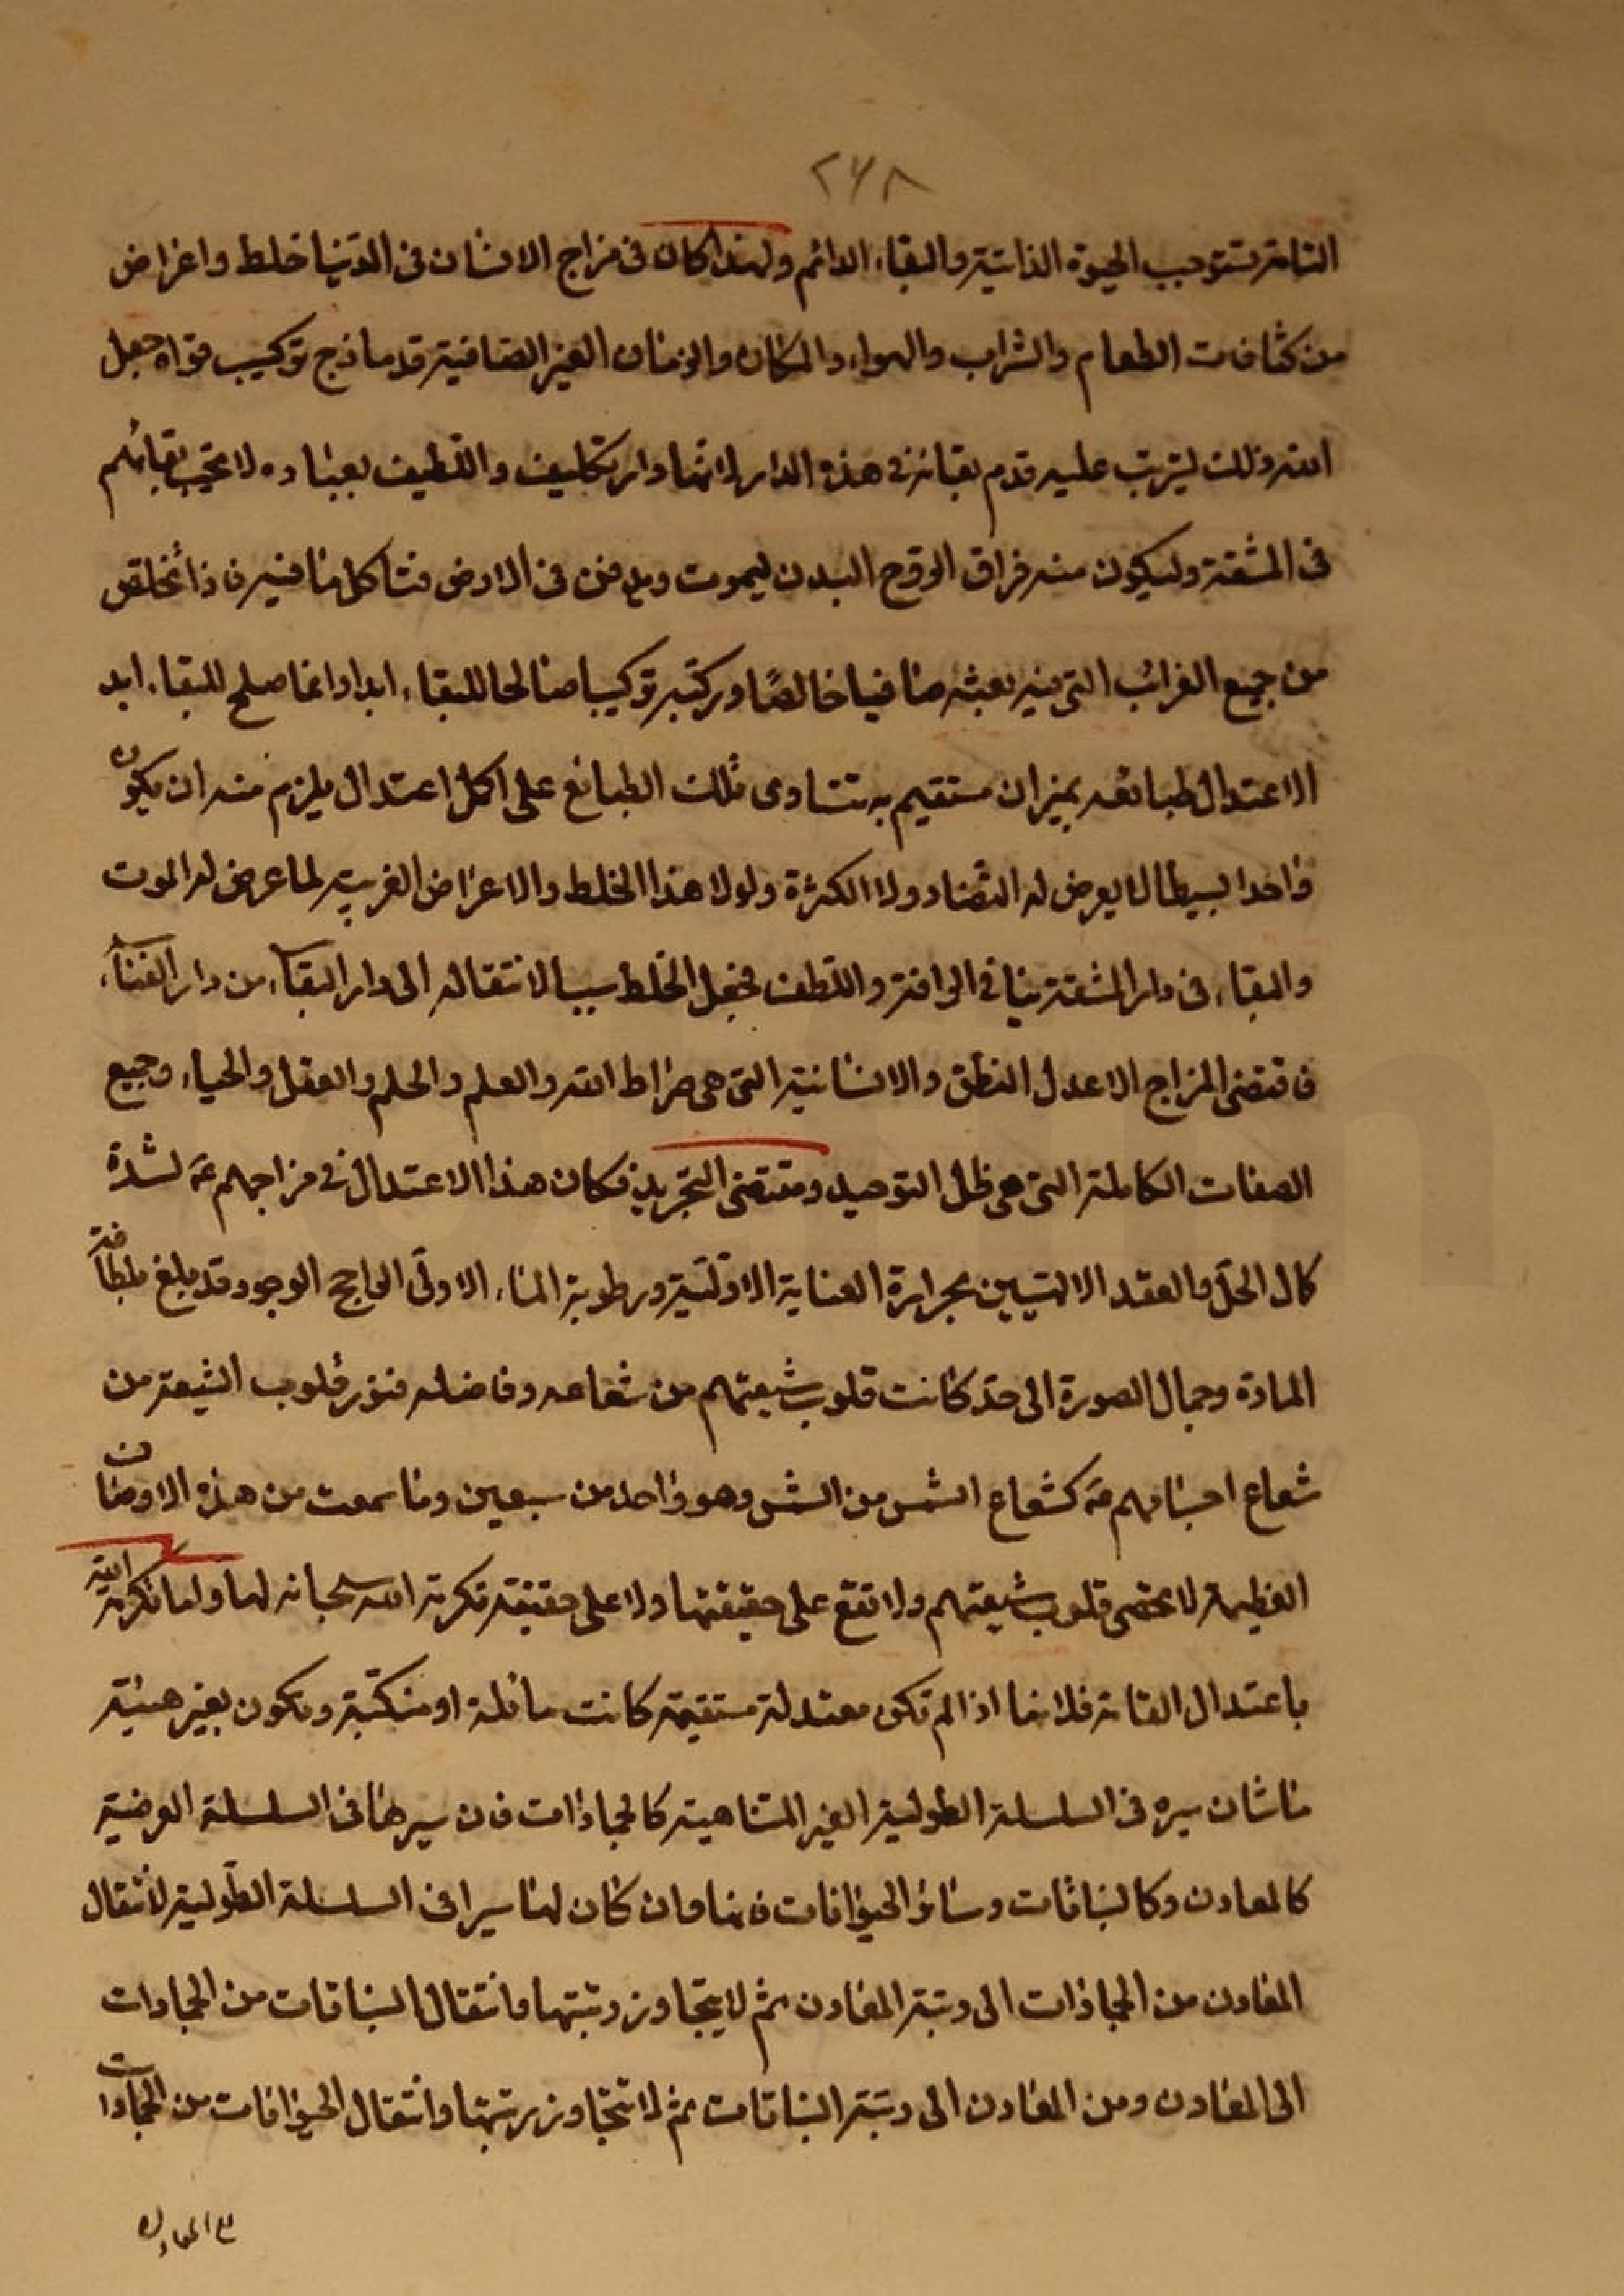 ٢٦٨
التامة تستوجب الحيوة الذاتية والبقاء الدائم ولهذا كان فى مزاج الانسان فى الدنيا خلط واعراض
من كثافات الطعام والشراب والهواء والمكان والزمان الغير الصافية قد مازج تركيب قواه جعل
الله ذلك ليترتب عليه عدم بقائه فى هذه الدار لانها دار تكليف واللطيف بعباده لا يحب بقائهم
فى المشقة وليكون منه فراق الروح البدن ليموت ويدفن فى الارض فتاكل ما فيه فاذا تخلص
من جميع الغرائب التى فيه بعثه صافيا خالصا وركبه تركيبا صالحا للبقاء ابدا وانما صلح للبقاء ابد
الاعتدال طبائعه بميزان مستقيم به تتساوى تلك الطبائع على اكمل اعتدال يلزم منه ان يكون
واحدا بسيطا لا يعرض له التضاد ولا الكثرة ولولا هذا الخلط والاعراض الغريبة لما عرض له الموت
والبقاء فى دار المشقة ينافى الرافة واللطف فجعل الخلط سببا لانتقاله الى دار البقاء من دار الفناء
فاقتضى المزاج الاعدل النطق والانسانية التى هى صراط الله والعلم والحلم والعقل والحياء وجميع
الصفات الكاملة التى هى ظل التوحيد ومقتضى التجريد فكان هذا الاعتدال فى مزاجهم ع لشدة
كمال الحل والعقد الالهيين بحرارة العناية الازلية ورطوبة الماء الاولى الراجح الوجود قد بلغ بلطافة
المادة وجمال الصورة الى حد كانت قلوب شيعتهم من شعاعه وفاضله فنور قلوب الشيعة من
شعاع اجسامهم ع كشعاع الشمس من الشمس وهو واحد من سبعين وما سمعت من هذه الاوصاف
العظيمة لا تحتمل قلوب شيعتهم ولا تقع على حقيقتها ولا على حقيقة تكرمة الله سبحانه لها واما تكرمة الله
باعتدال القامة فلانها اذا لم تكن معتدلة مستقيمة كانت مائلة او منكبة وتكون بغير هيئة
ما شان سيره فى السلسلة الطولية الغير المتناهية كالجمادات فان سيرها فى السلسلة العرضية
كالمعادن وكالنباتات وسائر الحيوانات فانها وان كان لها سيرا فى السلسلة الطولية لانتقال
المعادن من الجمادات الى رتبة المعادن ثم لا يتجاوز رتبتها وانتقال النباتات من الجمادات
الى المعادن ومن المعادن الى رتبة النباتات ثم لا تتجاوز رتبتها وانتقال الحيوانات من الجمادات
الى المعادن